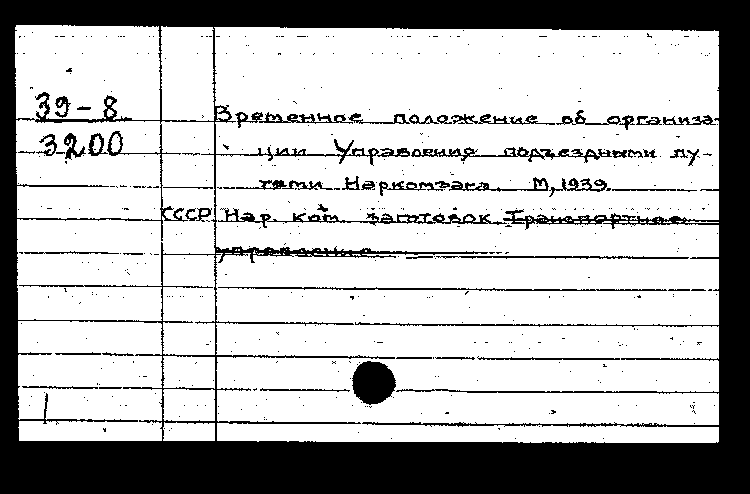 39-8
3200
Временное положение об организа-
ции Управления подъездными пу-
тями Наркомзага. М, 1939.
СССР Нар. ком. заготовок Транспортное
управление